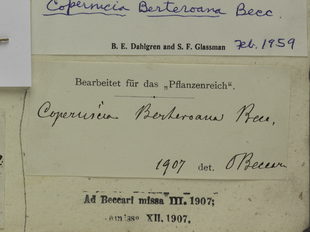 Copernicia Berteroana Becc.
B. E. Dahlgren and S. F. Glassman Feb. 1959
Bearbeitet für das „Pflanzenreich“.
Copernicia Berteroana Becc.
1907 det. OBeccari
Ad Beccari missa III. 1907;
XII. 1907.